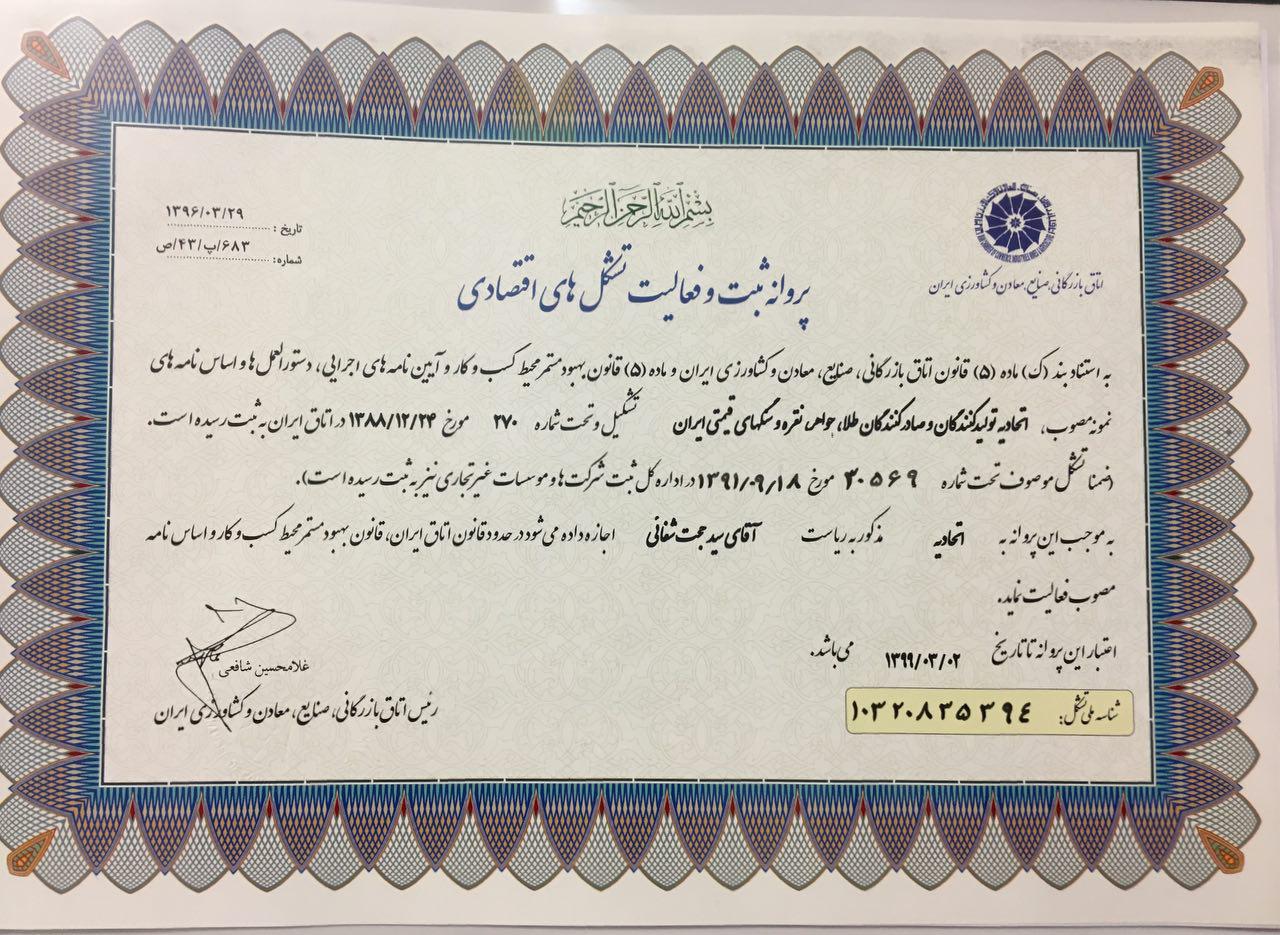 بسم الله الرحمن الرحیم
اتاق بازرگانی، صنایع، معادن و کشاورزی ایران
تاریخ : ۱۳۹۶/۰۳/۲۹
شماره: ۶۸۳/پ/۴۳/ص
پروانه ثبت و فعالیت تشکل های اقتصادی
به استناد بند (ک) ماده (۵) قانون اتاق بازرگانی، صنایع، معادن و کشاورزی ایران و ماده (۵) قانون بهبود مستمر محیط کسب و کار و آیین نامه های اجرایی، دستورالعمل ها و اساس نامه های
نمونه مصوب، اتحادیه تولیدکنندگان و صادرکنندگان طلا، جواهر، نقره و سنگهای قیمتی ایران تشکیل و تحت شماره ۲۷۰ مورخ ۱۳۸۸/۱۲/۲۴ در اتاق ایران به ثبت رسیده است.
(ضمنا تشکل موصوف تحت شماره ۳۰۵۶۹ مورخ ۱۳۹۱/۰۹/۱۸ در اداره کل ثبت شرکت ها و موسسات غیرتجاری نیز به ثبت رسیده است).
به موجب این پروانه به اتحادیه مذکور به ریاست آقای سید حجت شفائی اجازه داده می شود در حدود قانون اتاق ایران، قانون بهبود مستمر محیط کسب و کار و اساس نامه
مصوب فعالیت نماید.
اعتبار این پروانه تا تاریخ ۱۳۹۹/۰۳/۰۲ می باشد.
شناسه ملی تشکل: ۱۰۳۲۰۸۳۵۳۹۴
غلامحسین شافعی
رئیس اتاق بازرگانی، صنایع، معادن و کشاورزی ایران